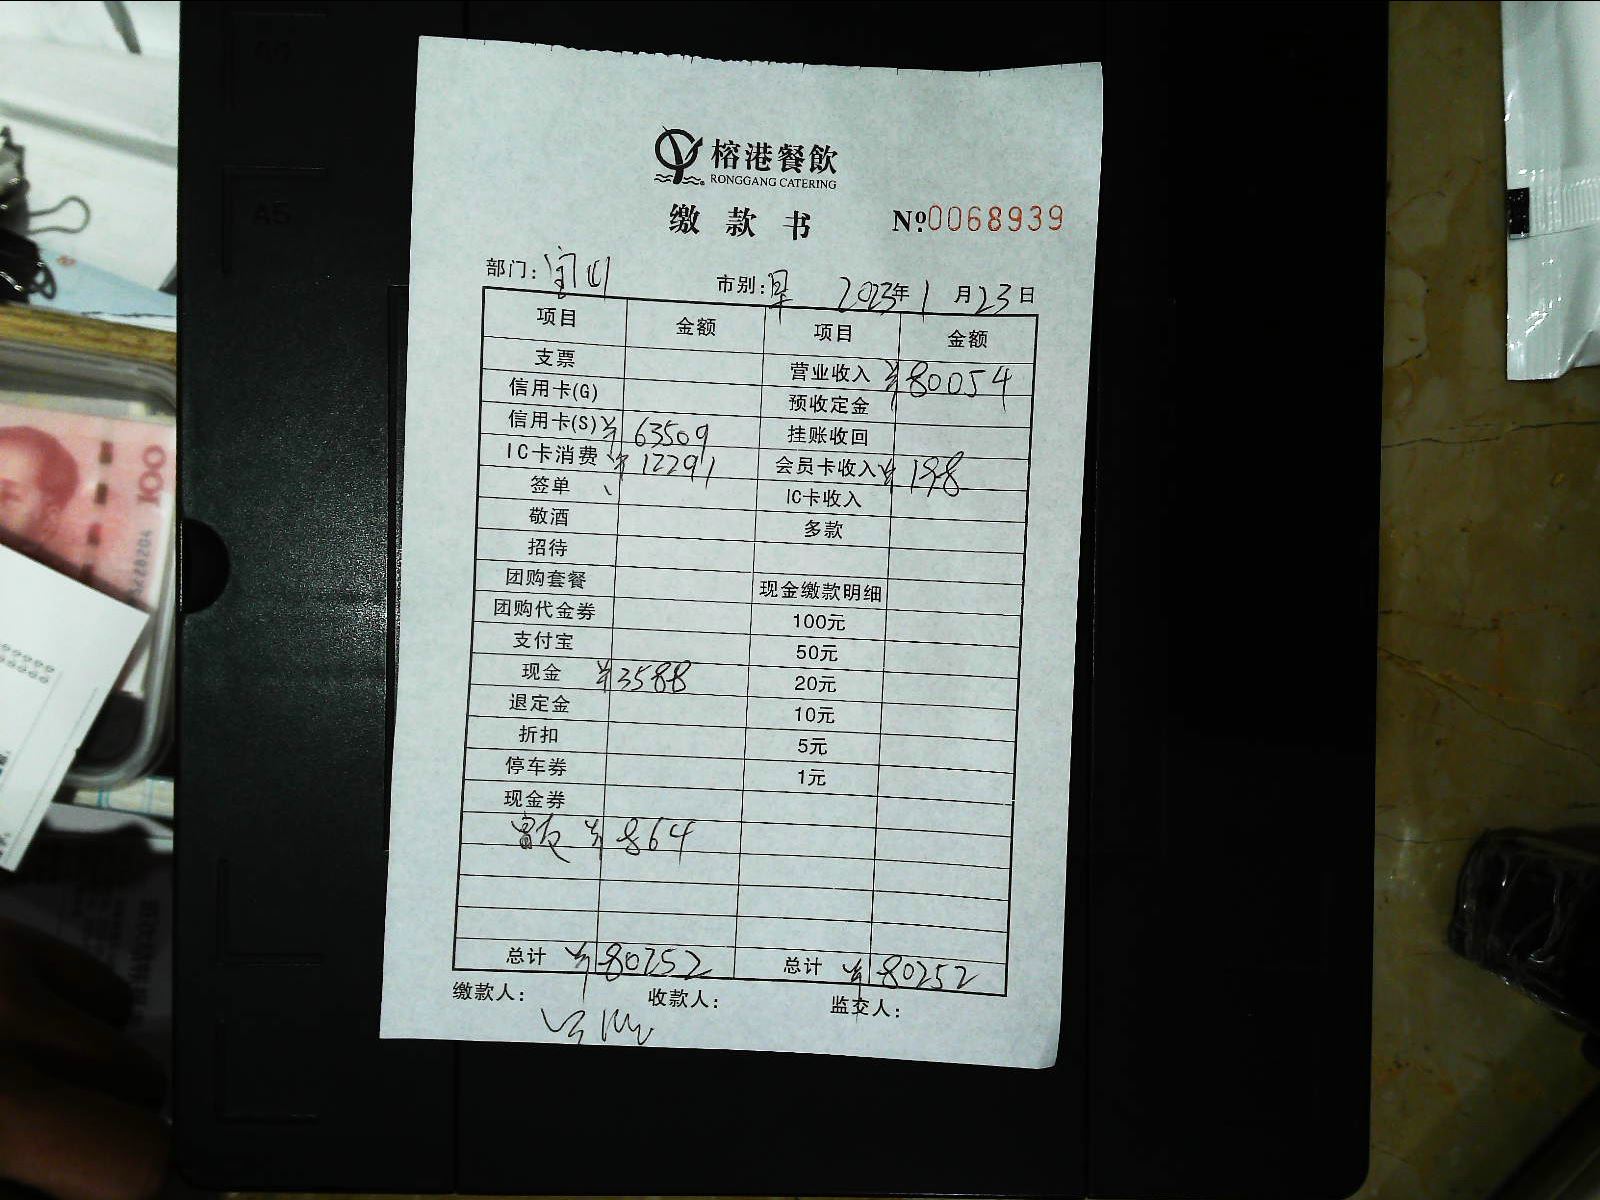 榕港餐飲
RONGGANG CATERING
缴款书 №0068939
部门: 市别:早 2023年1月23日
项目 金额 项目 金额
支票 营业收入 ¥80054
信用卡(G) 预收定金
信用卡(S) ¥63509 挂账收回
IC卡消费 ¥12291 会员卡收入 ¥198
签单 IC卡收入
敬酒 多款
招待
团购套餐 现金缴款明细
团购代金券 100元
支付宝 50元
现金 ¥3588 20元
退定金 10元
折扣 5元
停车券 1元
现金券
¥864
总计 ¥80252 总计 ¥80252
缴款人: 收款人: 监交人:
A5
100